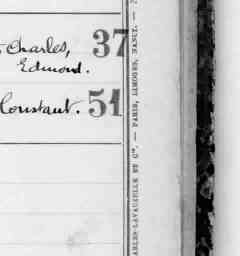 Charles, 37
Edmond.
Constant. 51
ARLES-LAVAUZELLE ET Cie. — PARIS, LIMOGES, NANCY. —